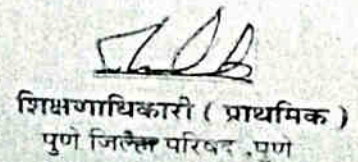 शिक्षणाधिकारी ( प्राथमिक )
पुणे जिल्हा परिषद ,पुणे